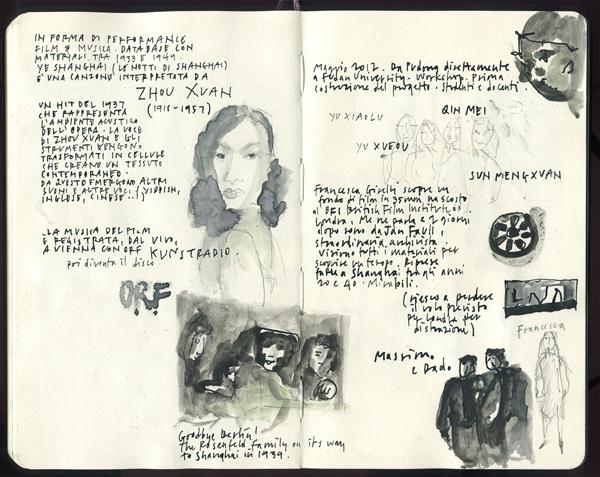 IN FORMA DI PERFORMANCE
FILM & MUSICA. DATABASE CON
MATERIALI TRA 1933 E 1949.
YE SHANGHAI (LE NOTTI DI SHANGHAI)
E' UNA CANZONE INTERPRETATA DA
ZHOU XUAN
(1918-1957)
UN HIT DEL 1937
CHE RAPPRESENTA
L'AMBIENTE ACUSTICO
DELL'OPERA. LA VOCE
DI ZHOU XUAN E GLI
STRUMENTI VENGONO
TRASFORMATI IN CELLULE
CHE CREANO UN TESSUTO
CONTEMPORANEO.
DA QUESTO EMERGONO ALTRI
SUONI E ALTRE VOCI (YIDDISH,
INGLESE, CINESE...)
LA MUSICA DEL FILM
E' REGISTRATA, DAL VIVO,
A VIENNA CON ORF KUNSTRADIO.
poi diventa il disco
O.R.F.
Goodbye Berlin!
The Rosenfeld family on its way
to Shanghai in 1939.
Maggio 2012. Da Pudong direttamente
a Fudan University. Workshop. Prima
costruzione del progetto. Studenti e docenti.
QIN MEI
YU XIAOLU
YU XUEOU
SUN MENGXUAN
Francesca Girelli scopre un
fondo di film in 35mm nascosto
al BFI British Film Institute di
Londra. Me ne parla e 2 giorni
dopo sono da Jan Faull,
straordinaria archivista.
Visiono tutti i materiali per
scoprire un tesoro. Riprese
fatte a Shanghai tra gli anni
20 e 40. Mirabili.
(riesco a perdere
il volo previsto
per Londra per
distrazione)
Francesca
Massimo
e Dado